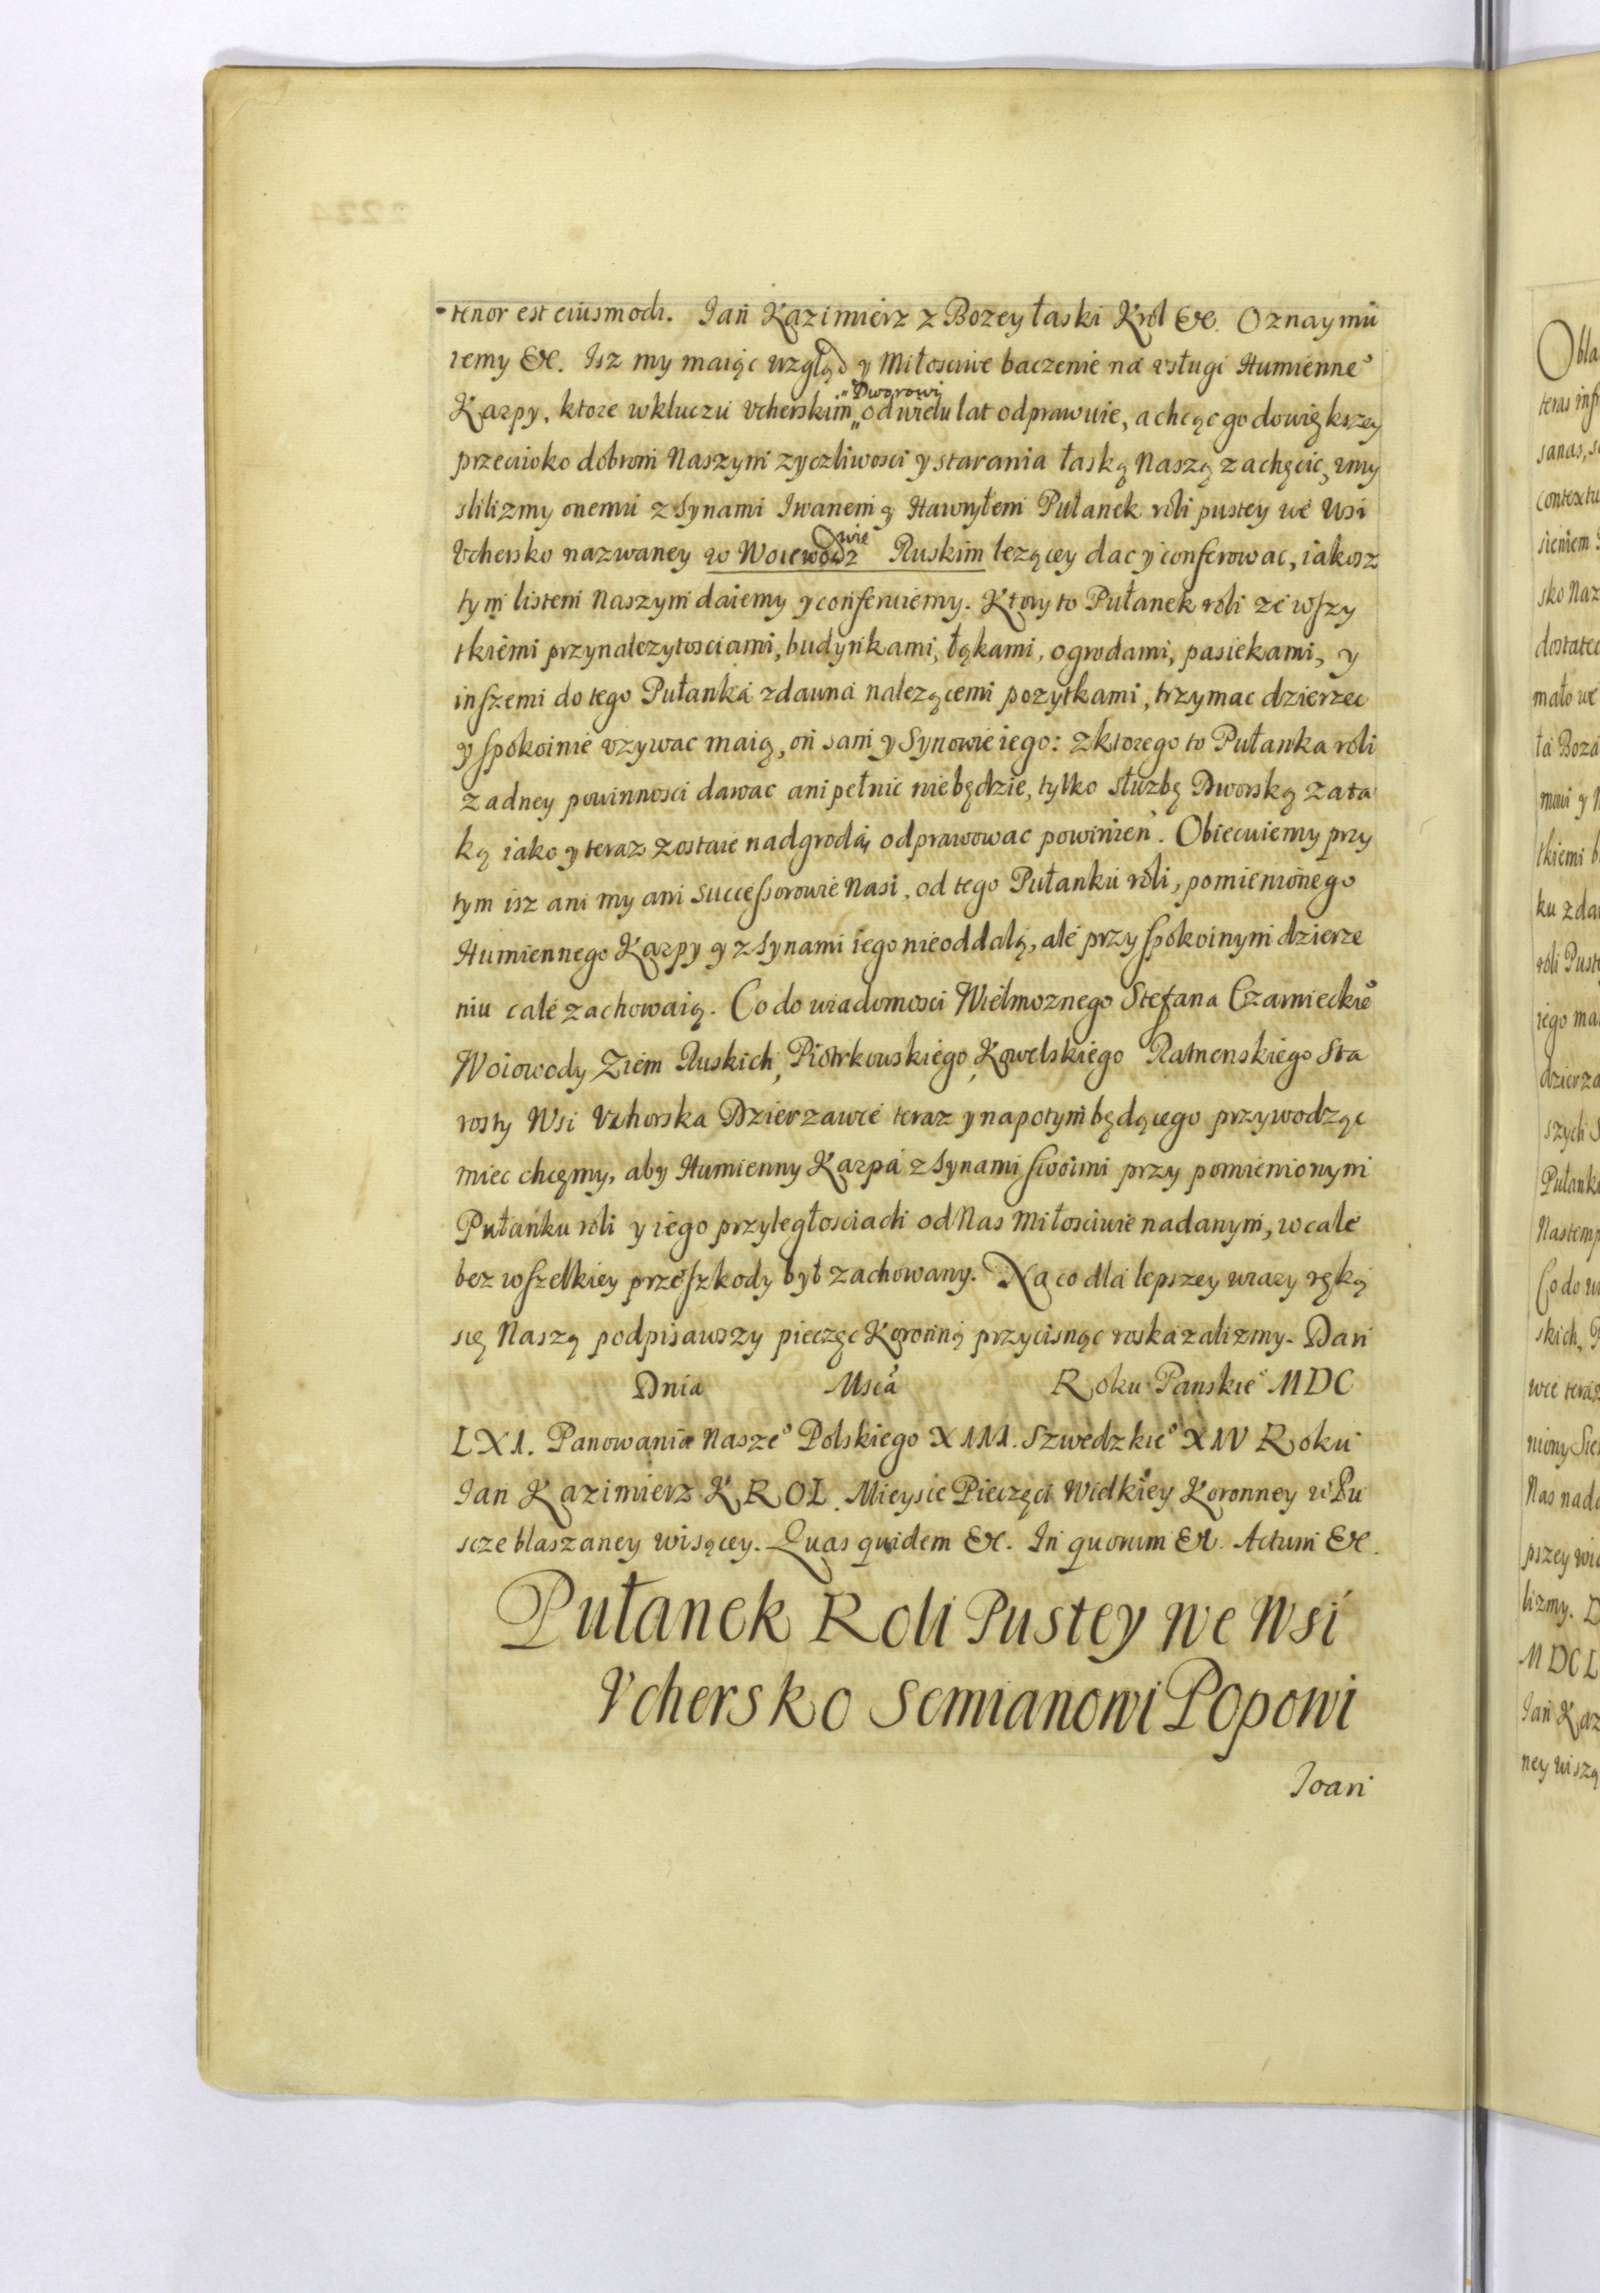 tenor est eiusmodi. Jan Kazimierz z Bozey łaski Krol &c. Oznaymu
iemy &c. Isz my maiąc wzgląd y Miłosciwe baczenie na vsługi Humienneº
Dworowi
Karpy, ktore w kluczu Vcherskim od wielu lat odprawuie, a chcąc go do większey
przeciwko dobrom Naszym zyczliwosci y starania łaską Naszą zachęcic, vmy
slilizmy onemu z Synami Iwanem y Hawryłem Pułanek roli pustey we Wsi
Vchersko nazwaney w Woiewodztwie Ruskim lezącey dac y conferowac, iakosz
tym listem Naszym daiemy y conferuiemy. Ktory to Pułanek roli ze wszy
tkiemi przynalezytosciami, budynkami, łąkami, ogrodami, pasiekami, y
inszemi do tego Pułanka zdawna nalezącemi pozytkami, trzymac dzierzec
y spokoinie vzywac maią, on sam y Synowie iego: z ktorego to Pułanka roli
zadney powinnosci dawac ani pełnic niebędzie, tylko słuzbę Dworską za ta
ką iako y teraz zostaie nadgrodą, odprawowac powinien. Obiecuiemy przy
tym isz ani my ani successorowie Nasi, od tego Pułanku roli, pomienionego
Humiennego Karpy y z Synami iego nieoddalą, ale przy spokoinym dzierze
niu cale zachowaią. Co do wiadomosci Wielmoznego Stefana Czarnieckieº
Woiowody Ziem Ruskich, Piotrkowskiego, Kowelskiego Ratnenskiego Sta
rosty Wsi Vchorska Dzierzawce teraz y napotym będącego przywodząc
miec chcemy, aby Humienny Karpa z Synami swoimi przy pomienionym
Pułanku roli y iego przyległosciach od Nas Miłosciwie nadanym, w cale
bez wszelkiey przeszkody był zachowany. Na co dla lepszey wiary ręką
się Naszą podpisawszy pieczęc Koronną przycisnąc roskazalizmy. Dan
Dnia Msca Roku Panskieº MDC
LXI. Panowania Naszeº Polskiego XIII. Szwedzkieº XIV Roku
Jan Kazimierz KROL. Mieysce Pieczęci Wielkiey Koronney w Pu
scze blaszaney wisącey. Quas quidem &c. In quorum &c. Actum &c.
Pułanek Roli Pustey we Wsi
Vchersko Semianowi Popowi
Joan